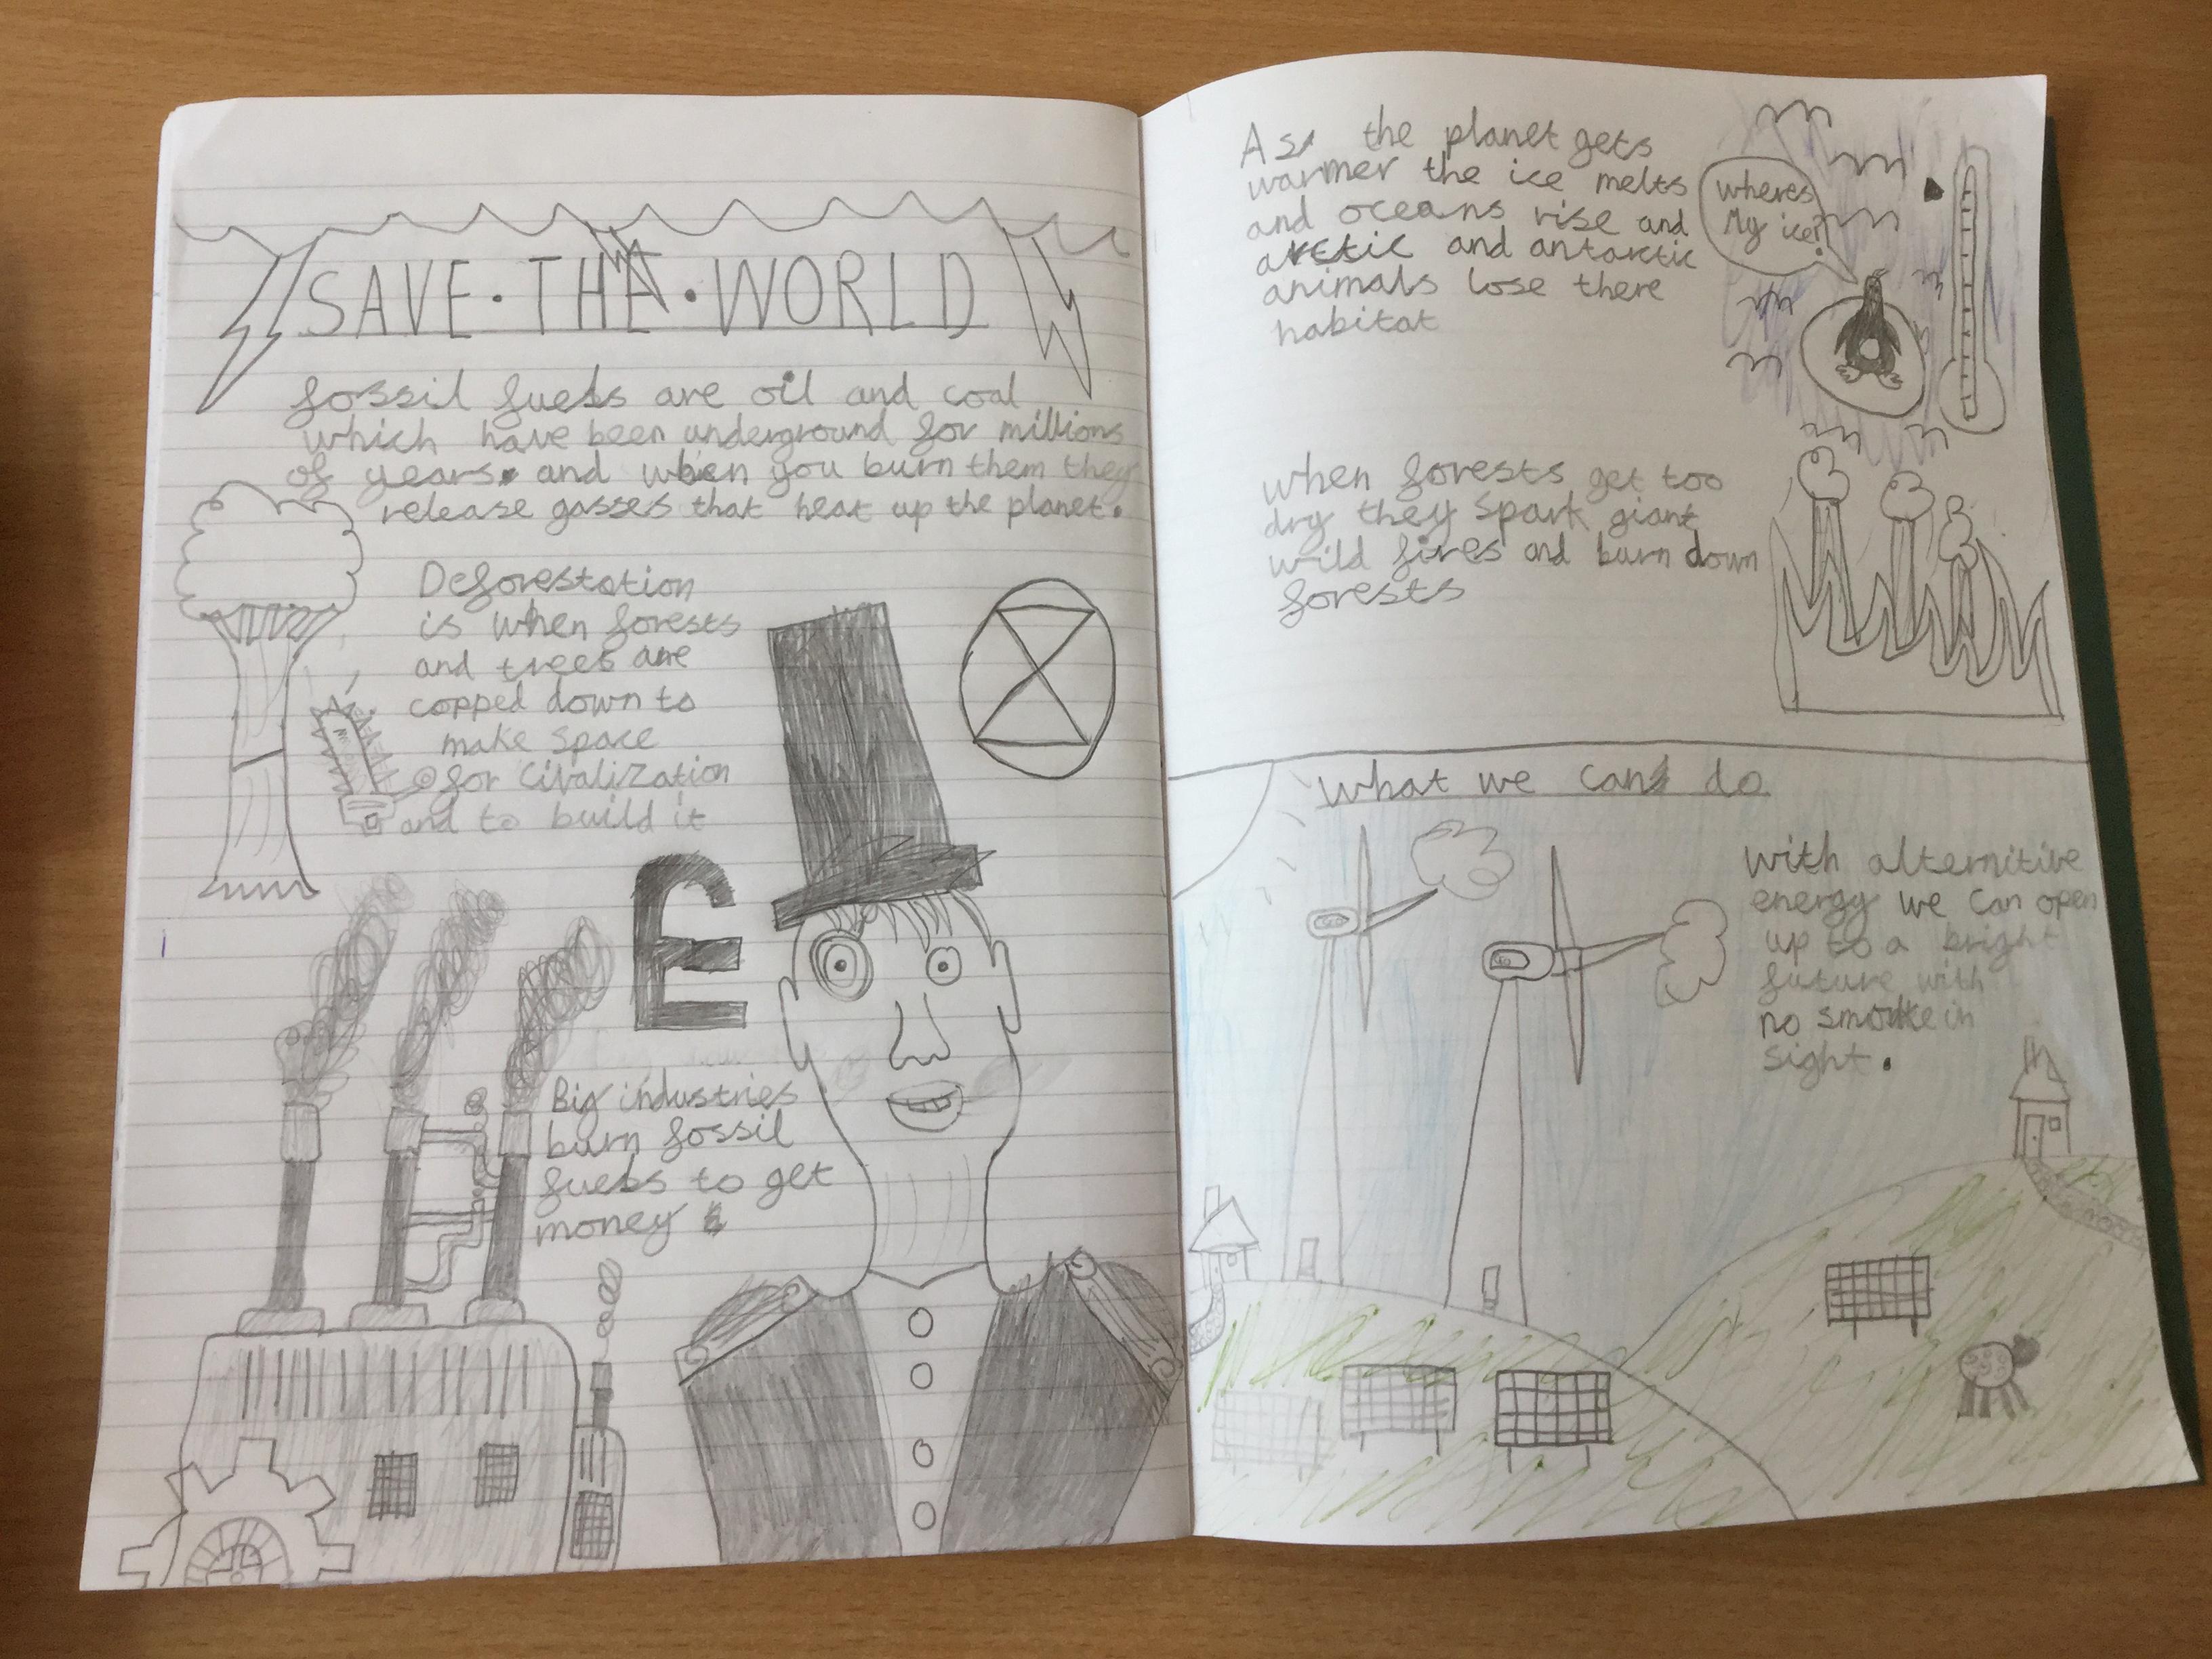 SAVE·THE·WORLD
fossil fuels are oil and coal
which have been underground for millions
of years. and when you burn them they
release gasses that heat up the planet.
Deforestation
is when forests
and trees are
copped down to
make space
for Civalization
and to build it
£
Big industries
burn fossil
fuels to get
money
As the planet gets
warmer the ice melts
and oceans rise and
arctic and antarctic
animals lose there
habitat
wheres
My ice?
when forests get too
dry they spark giant
wild fires and burn down
forests
What we can do
with alternitive
energy we can open
up to a bright
future with
no smoke in
sight.